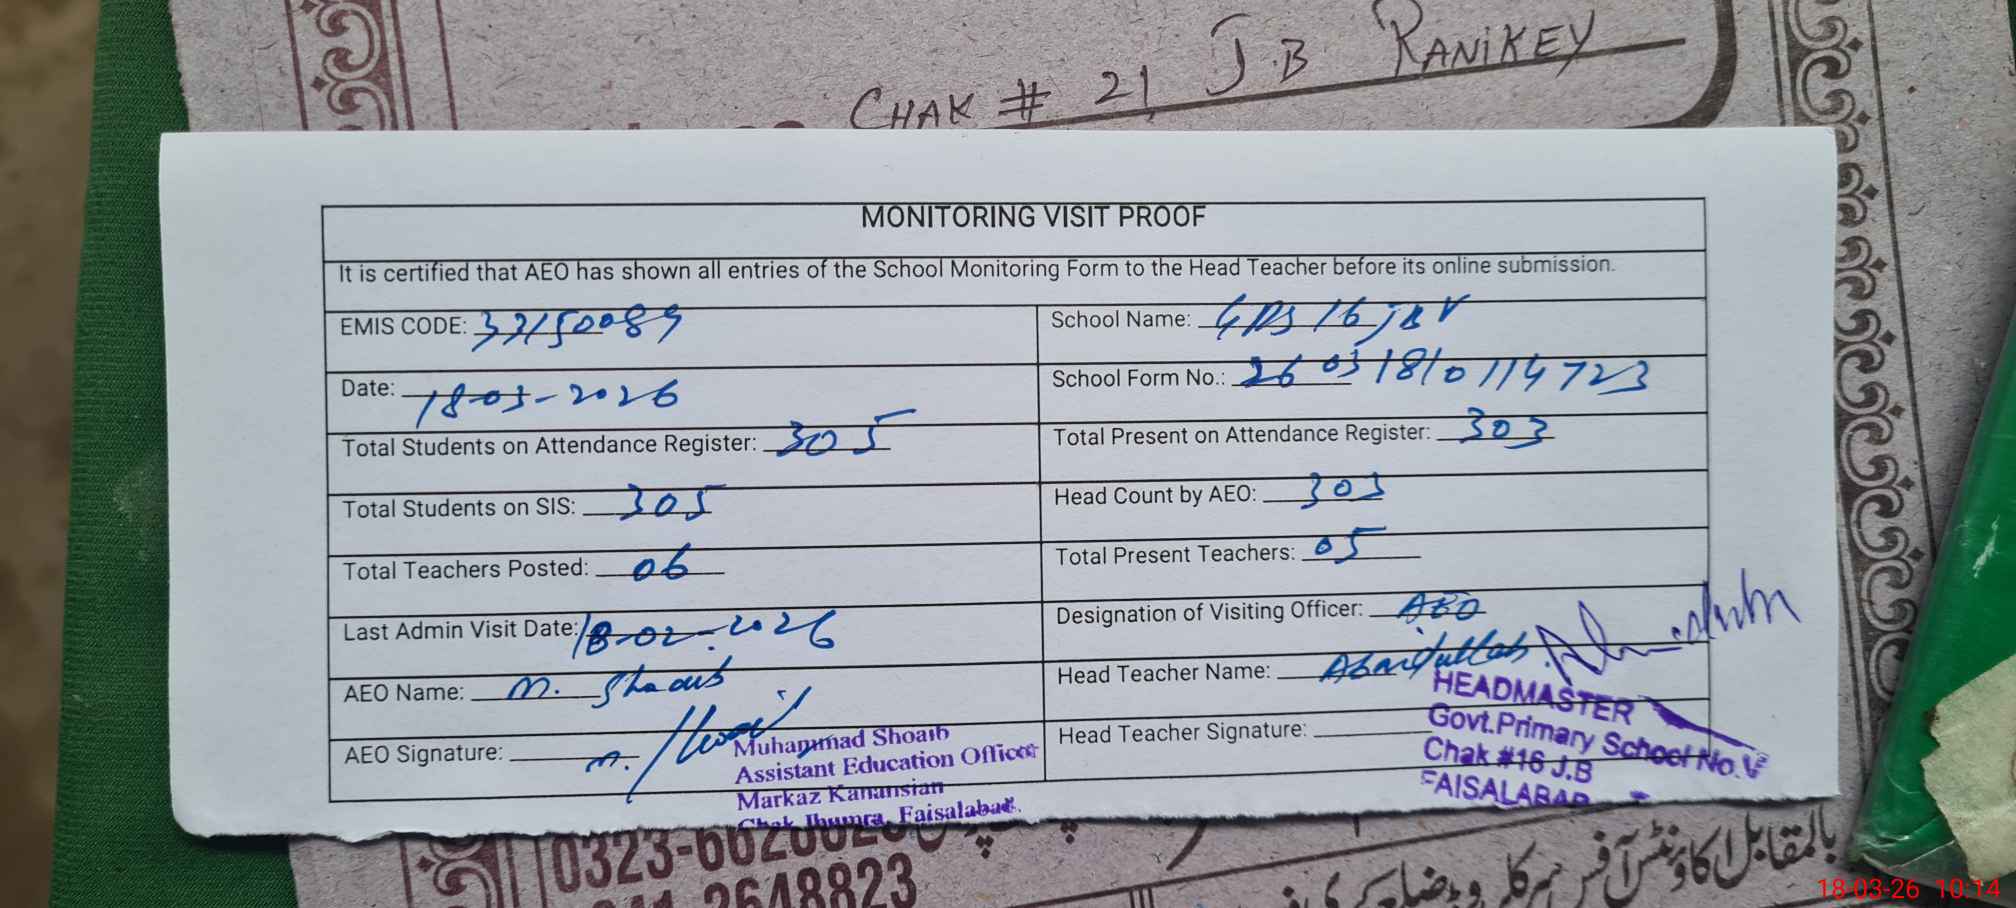 CHAK # 21 J.B RANiKEY
MONITORING VISIT PROOF
It is certified that AEO has shown all entries of the School Monitoring Form to the Head Teacher before its online submission.
EMIS CODE: 33150089 School Name: GPS 16 JB V
Date: 18-03-2026 School Form No.: 26 03 18 10114723
Total Students on Attendance Register: 305 Total Present on Attendance Register: 303
Total Students on SIS: 305 Head Count by AEO: 303
Total Teachers Posted: 06 Total Present Teachers: 05
Last Admin Visit Date: 18-02-2026 Designation of Visiting Officer: AEO
AEO Name: M. Shoaib Head Teacher Name: Abaidullah
AEO Signature: Head Teacher Signature:
Muhammad Shoaib
Assistant Education Officer
Markaz Kanansian
Chak Jhumra, Faisalabad.
HEADMASTER
Govt.Primary School No.V
Chak #16 J.B
FAISALABAD
2648823
بالمقابل اکاؤنٹس آفس سرکلر روڈ ضلع کچہری
18-03-26 10:14